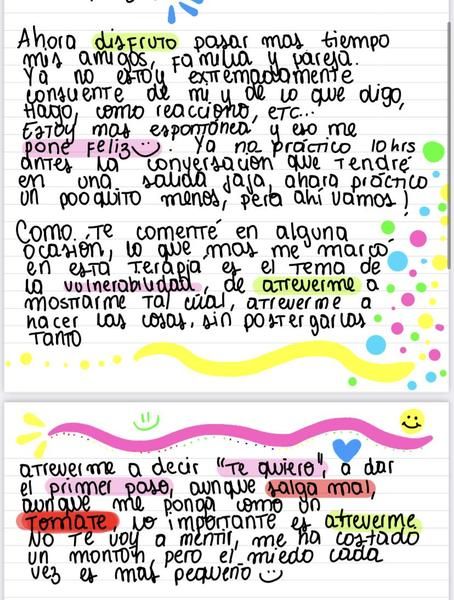 Ahora disfruto pasar mas tiempo
mis amigos, familia y pareja.
Ya no estoy extremadamente
consuente de mi y de lo que digo,
Hago, como reacciono, etc...
Estoy mas espontánea y eso me
pone Feliz. Ya no práctico 10hrs
antes la conversación que tendré
en una salida jaja, ahora práctico
un pooquito menos, pero ahi vamos!
Como te comenté en alguna
ocasión, lo que mas me marcó
en esta terapia es el tema de
la vulnerabilidad, de atreverme a
mostrarme tal cual, atreverme a
hacer las cosas, sin postergarlas
tanto
atreverme a decir "te quiero", a dar
el primer paso, aunque salga mal,
aunque me ponga como un
Tomate, lo importante es atreverme
No te voy a mentir, me ha costado
un montón, pero el miedo cada
vez es mas pequeño